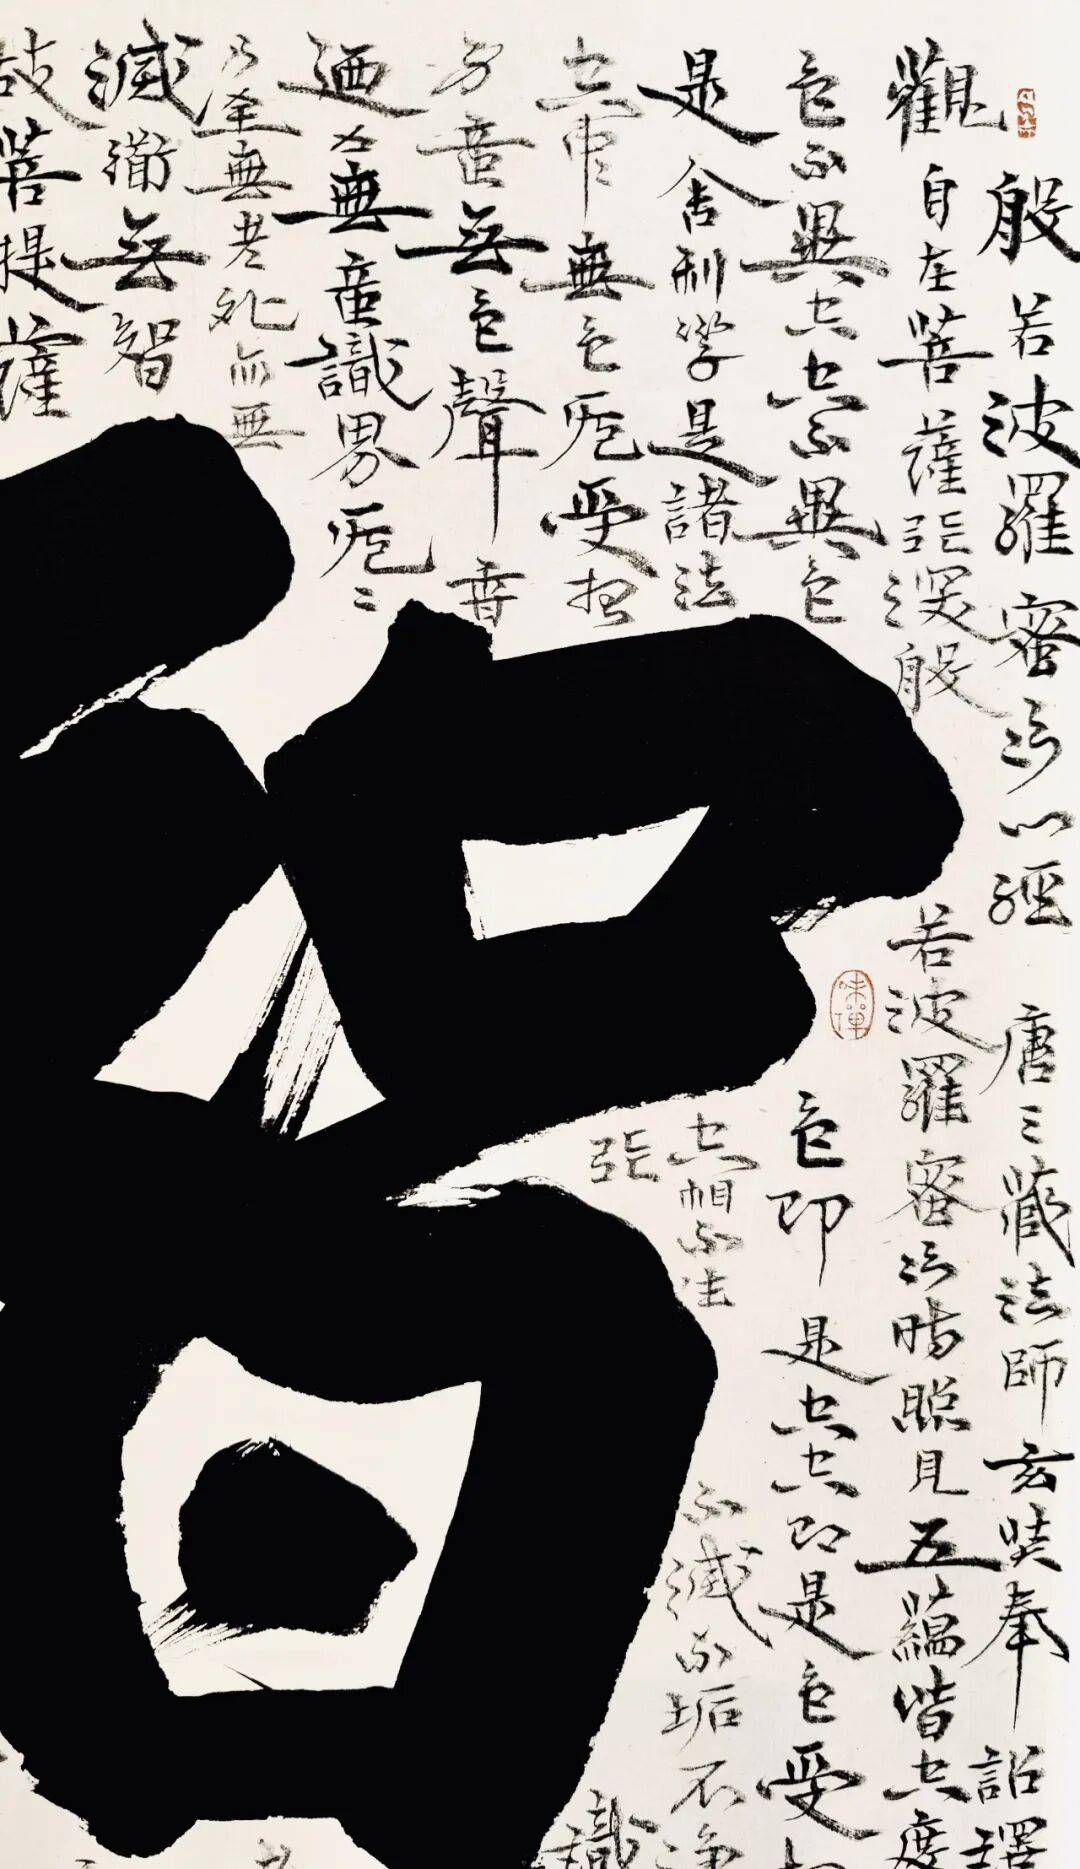 般若波羅蜜多心經 唐三藏法師玄奘奉 詔譯
觀自在菩薩行深般 若波羅蜜多時照見五蘊皆空度
色不異空空不異色 色即是空空即是色受想
是舍利子是諸法 空相不生 不滅不垢不淨
空中無色无受想 行 識
身意無色聲香
迺至無意識界无
乃至無老死亦無
滅道無智
故菩提薩
智